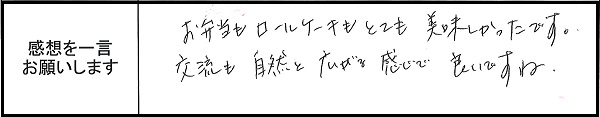 感想を一言
お願いします
お弁当もロールケーキもとても美味しかったです。
交流も自然と広がる感じで良いですね.